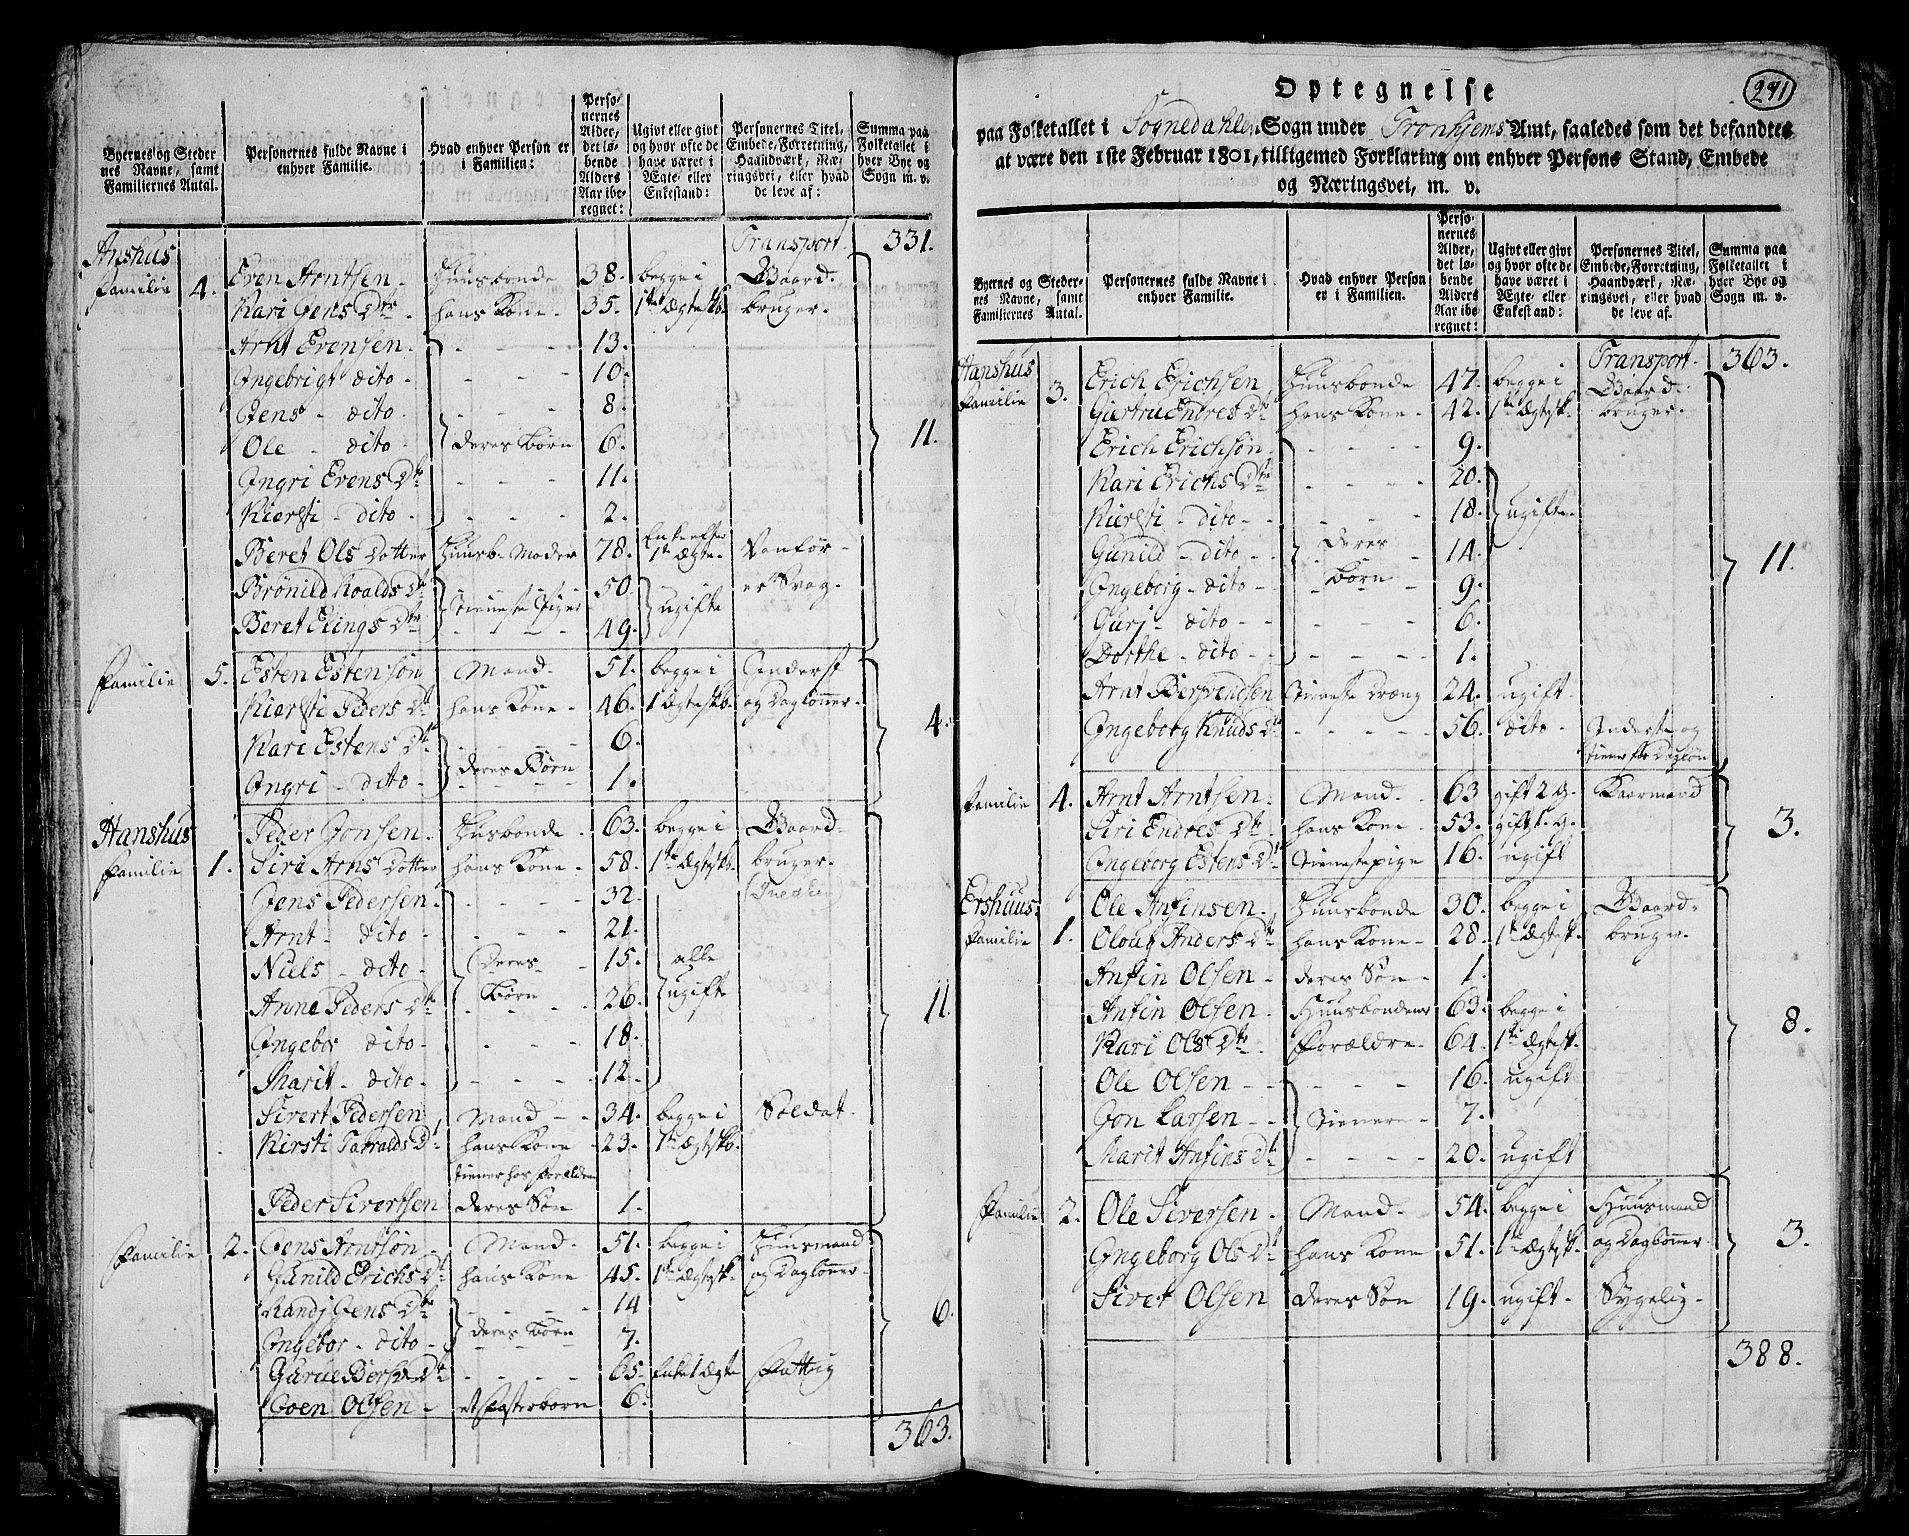 Byernes og Steder nes Navne, samt Familiernes Antal.
Personernes fulde Navne i enhver Familie.
Hvad enhver Person er i Familien:
Perso- nernes Alder, det lø- bende Alders Aar ibe- regnet:
Ugivt eller givt og hvor ofte de have været i Ægte- eller Enkestand:
Personernes Titel, Embede, Forretning, Haandværk, Næ- ringsvei, eller hvad de leve af:
Summa paa Folketallet i hver Bye og Sogn m. v.
Transport. 331.
Anshus
Familie 4. Even Arntsen Huusbonde 38. begge i Gaard-
Kari Jens Dtr. hans Kone 35. 1ste Ægtesk. bruger.
Arnt Evensen 13.
Ingebrigt dito 10.
Jens dito 8.
Ole dito deres Børn 6. 11.
Ingri Evens Dtr 11.
Kiersti dito 2.
Beret Ols Dotter Huusb. Moder 78. Enke efter 1ste Ægte. Vanfør-
Brönild Roalds Dt 50. er Svag.
Beret Elings Dtr Tieneste Piger 49. ugifte
Familie 5. Esten Estensøn Mand 51. begge i Inderst
Kiersti Peders Dt hans Kone 46. 1 Ægtesk. og Daglønner.
Kari Estens Dt 6. 4.
Ingri dito deres Børn 1.
Hanshus
Familie 1. Peder Jonsen Husbonde 63. begge i Gaard-
Siri Arns Dotter hans Kone 58. 1ste Ægtesk. bruger.
Jens Pedersen 32.
Arnt dito 21.
Niels dito Deres 15. alle
Anne Peders Dt Børn 26. ugifte 11.
Ingebor dito 18.
Marit dito 12.
Sivert Pedersen Mand 34. begge i Soldat.
Kirsti Tarralds Dt hans Kone 23. 1ste Ægtesk.
tiener hos Forældre
Peder Sivertsen deres Søn 1.
Familie 2. Jens Arntsøn Mand 51. begge i Huusmand
Gunild Erichs Dt hans Kone 45. 1ste Ægtesk. og Daglønner
Randj Jens Dtr 14
Ingebor dito deres Børn 7. 6.
Gurue Bersv. Dt 65. Enke 1 Ægte Fattig
Goen Olsen et Fosterbarn 6.
363.
291
Optegnelse
paa Folketallet i Sognedahlen Sogn under Tronhjems Amt, saaledes som det befandtes
at være den 1ste Februar 1801, tilligemed Forklaring om enhver Persons Stand, Embede
og Næringsvei, m. v.
Byernes og Steder- nes Navne, samt Familiernes Antal.
Personernes fulde Navne i enhver Familie.
Hvad enhver Person er i Familien.
Perso- nernes Alder, det lø- bende Alders Aar ibe- regnet:
Ugivt eller givt og hvor ofte de have været i Ægte- eller Enkestand:
Personernes Titel, Embede, Forretning, Haandværk, Næ- ringsvei, eller hvad de leve af.
Summa paa Folketallet i hver Bye og Sogn m. v.
Transport. 363.
Hanshus
Familie 3. Erich Erichsen Huusbonde 47. begge i Gaard-
Giertru Endres Dt hans Kone 42. 1ste Ægtesk. bruger.
Erich Erichsøn 9.
Kari Erichs Dtr 20.
Kiersti dito 18. ugifte
Gunild dito Deres 14.
Ingeborg dito Børn 9. 11.
Guri dito 6.
Dorthe dito 1.
Arnt Bersvendsen Tieneste Dreng 24. ugift
Ingeborg Knuds Dt 56. dito Inderste og
tiener for Dagløn
Familie 4. Arnt Arntsen Mand 63 gift 2 G. Kaarmand
Siri Endres Dt hans Kone 53. gift 1. G. 3.
Ingeborg Estens Dt Tienestepige 16. ugift
Ershuus
Familie 1. Ole Anfinsen Huusbonde 30. begge i Gaard-
Olouf Anders Dt hans Kone 28. 1ste Ægtesk. bruger.
Anfin Olsen deres Søn 1.
Anfin Olsen Huusbondens 63. begge i 8.
Kari Ols Dtr Forældre 64. 1ste Ægtesk.
Ole Olsen 16. ugift
Jon Larsen Tienere 7.
Marit Anfins Dt 20. ugift
Familie 2. Ole Siversen Mand 54. begge i Huusmand
Ingeborg Ols Dt hans Kone 51. 1ste Ægtesk. og Daglønner 3.
Siver Olsen deres Søn 19. ugift Sygelig
388.